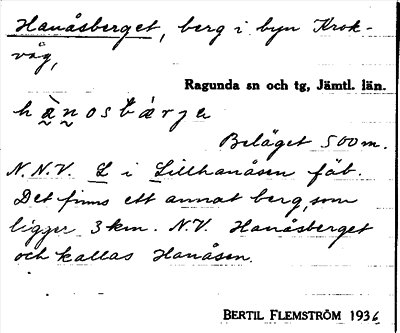 Hanåsberget, berg i byn Krok-
våg,
Ragunda sn och tg, Jämtl. län.
hà̰n̰osbárje
Beläget 500 m.
N.N.V. L i Lillhanåsen fäb.
Det finns ett annat berg, som
ligger 3 km. N.V. Hanåsberget
och kallas Hanåsen.
BERTIL FLEMSTRÖM 1936